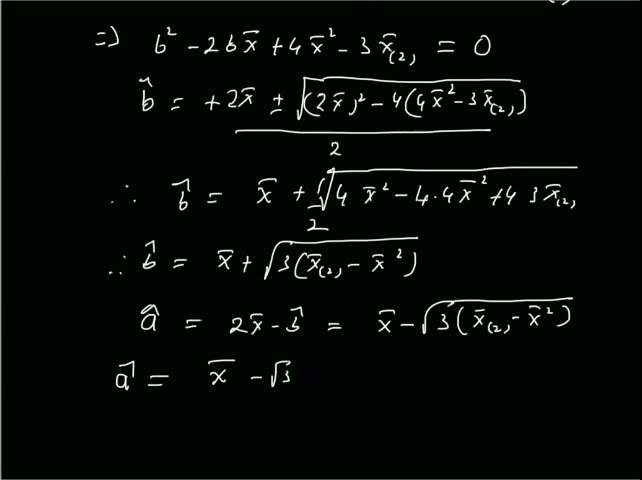 ⇒ b² - 2bx̄ + 4x̄² - 3x̄₍₂₎ = 0
b̂ = +2x̄ ± √((2x̄)² - 4(4x̄² - 3x̄₍₂₎)) / 2
∴ b̂ = x̄ + 1/2 √(4x̄² - 4·4x̄² + 4 3x̄₍₂₎)
∴ b̂ = x̄ + √(3(x̄₍₂₎ - x̄²))
â = 2x̄ - b̂ = x̄ - √(3(x̄₍₂₎ - x̄²))
â = x̄ - √3